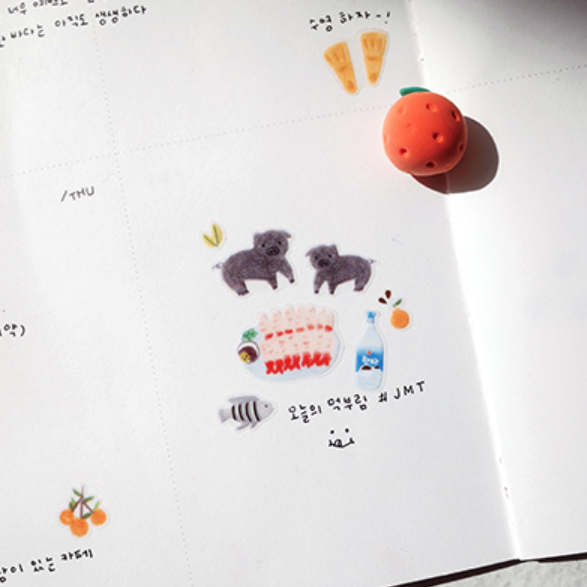 너무 예뻤고
바다는 아직도 생생하다
수영 하자~!
/THU
약)
오늘의 먹부림 #JMT
있는 카페